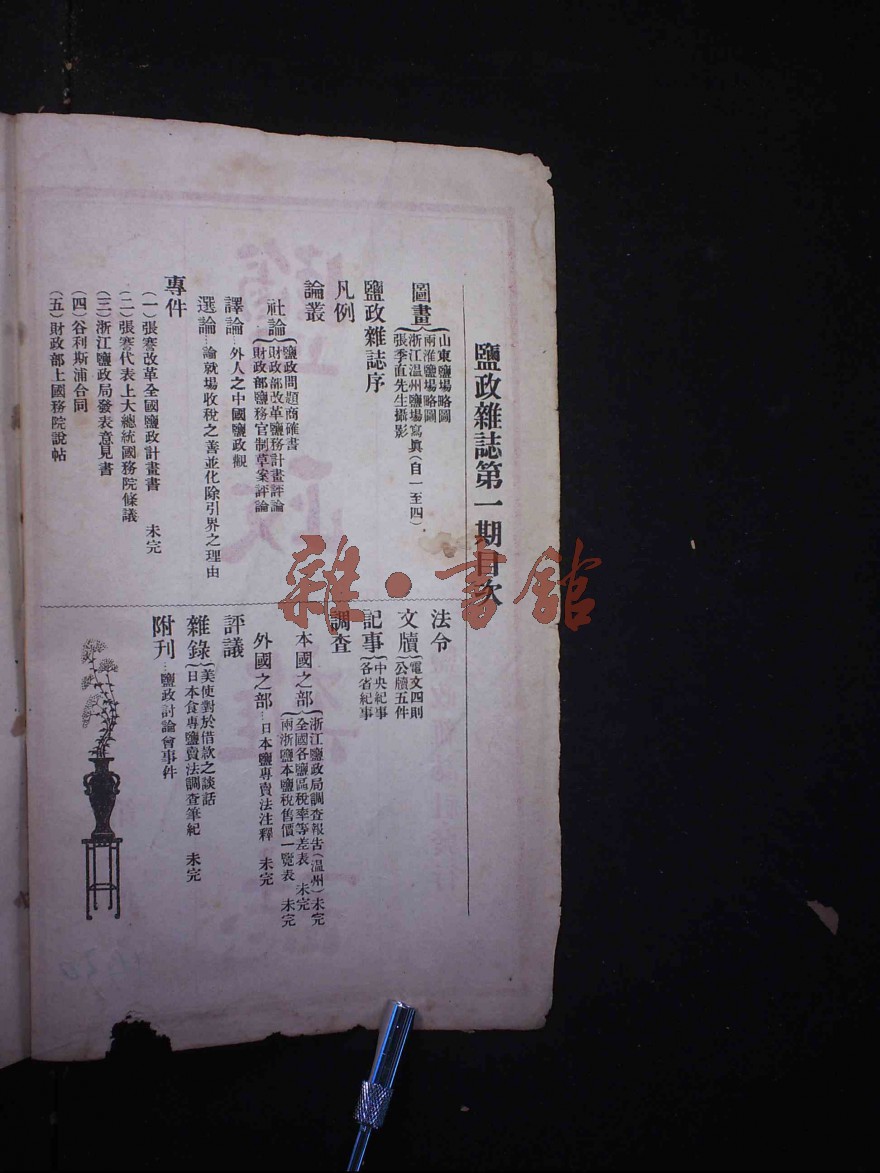 鹽政雜誌第一期目次
圖畫
山東鹽場略圖
兩淮鹽場略圖
浙江温州鹽場寫眞（自一至四）
張季直先生攝影
鹽政雜誌序
凡例
論叢
社論
鹽政問題商確書
財政部改革鹽務計畫評論
財政部鹽務官制草案評論
譯論…外人之中國鹽政觀
選論…論就場收稅之善並化除引界之理由
專件
（一）張謇改革全國鹽政計畫書 未完
（二）張謇代表上大總統國務院條議
（三）浙江鹽政局發表意見書
（四）谷利斯浦合同
（五）財政部上國務院說帖
法令
文牘
電文四則
公牘五件
記事
中央紀事
各省紀事
調查
本國之部
浙江鹽政局調查報告（温州）未完
全國各鹽區稅率等差表 未完
兩浙鹽本鹽稅售價一覽表 未完
外國之部…日本鹽專賣法注釋 未完
評議
雜錄
美使對於借款之談話
日本食專鹽賣法調查筆紀 未完
附刊…鹽政討論會事件
雜·書館